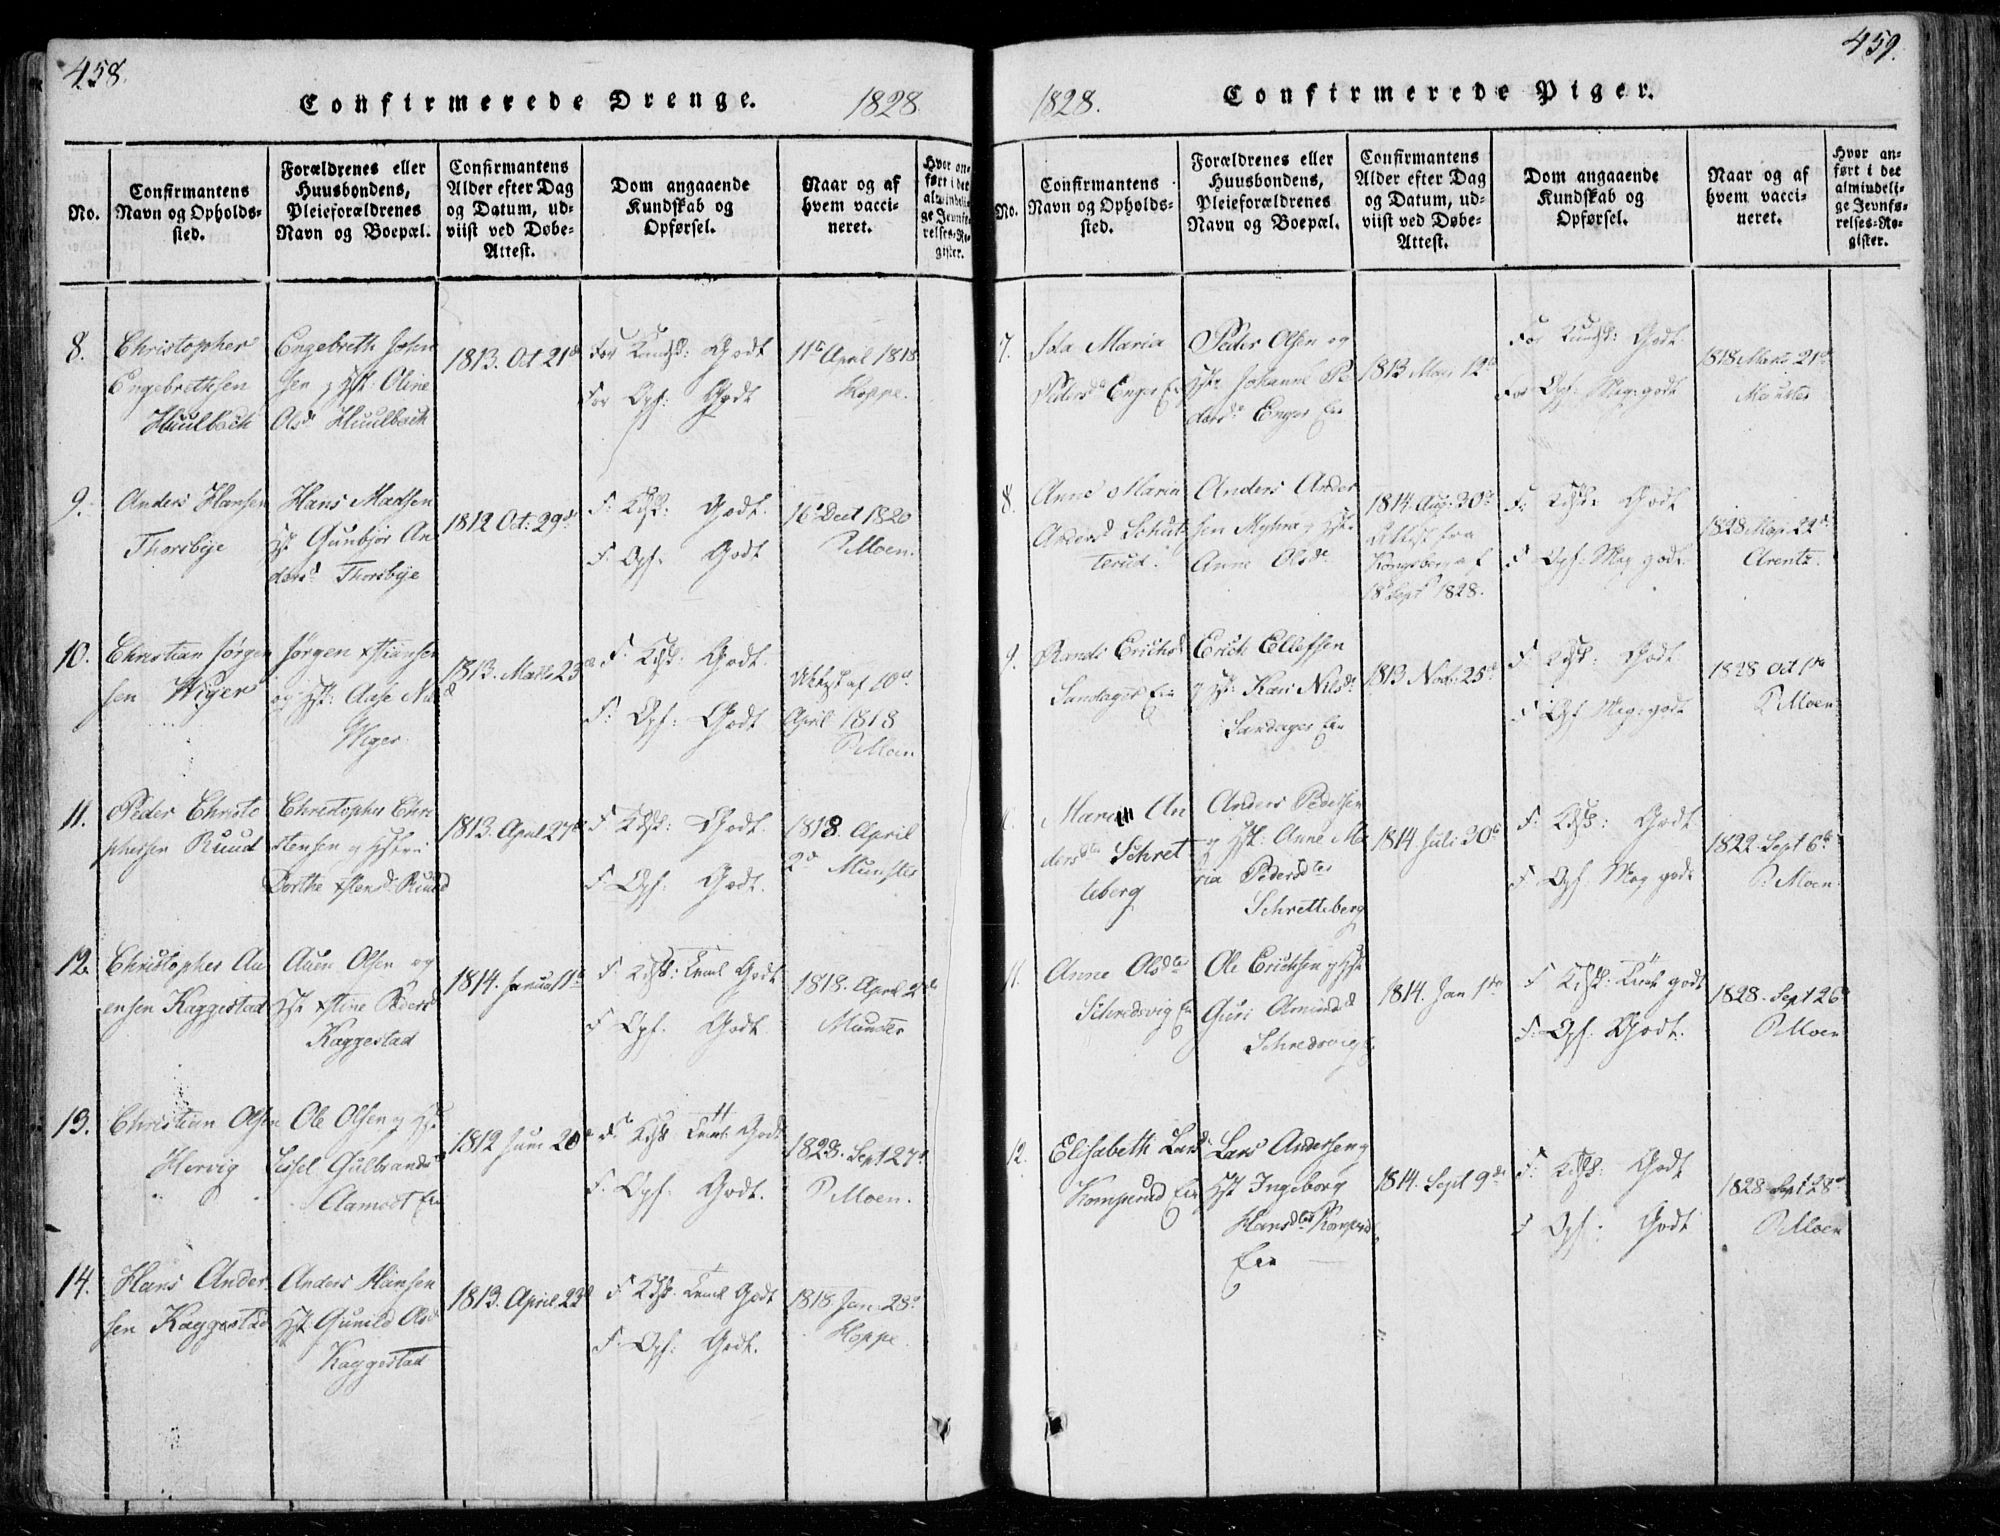 458.
Confirmerede Drenge.
1828
No.
Confirmantens
Navn og Opholds-
sted.
Forældrenes eller
Huusbondens,
Pleieforældrenes
Navn og Boepæl.
Confirmantens
Alder efter Dag
og Datum, ud-
viist ved Døbe-
Attest.
Dom angaaende
Kundskab og
Opførsel.
Naar og af
hvem vacci-
neret.
Hvor an-
ført i det
almindeli-
ge Jevnfø-
relses-Re-
gister.
8.
Christopher
Engebrethsen
Huulbach
Engebreth John
sen g Hst: Oline
Olsd Huulbach
1813. Oct 21d
For Kundsk: Godt
For Opf: Godt
11d April 1818
Hoppe.
9.
Anders Hansen
Thorsbye
Hans Madsen
Hst Gunbjør An
dersd Thorsbye
1812 Oct: 29d
F: Kdsk: Godt.
F: Opf: Godt
16d Dect 1820
P Moen.
10.
Christian Jørgen
sen Wiger
Jørgen Xstiansen
og Hst: Aase Nils
d Wiger
1813. Marts 23d
F: Kdsk: Godt.
F: Opf: Godt
Attest af 10d
April 1818
P Moen
11.
Peder Christo
phersen Ruud
Christopher Chri
stensen g Hstru
Dorthe Xstensd Ruud
1813. April 27d
F: Kdsk: Godt.
F: Opf: Godt.
1818. April
2d Munster
12.
Christopher Au
ensen Kaggestad
Auen Olsen og
Hst Xstine Peders
Kaggestad
1814. Januar 1d
F: Kdsk: Teml Godt
F: Opf. Godt.
1818. April 2d
Munster
13.
Christian Olsen
Hervig
Ole Olsen g Hst
Sissel Gulbrandsd
Aamodt Eie
1812 Juni 20d
F: Kdsk: Teml: Godt
F: Opf: Godt.
1828. Sept 27d
P Moen.
14.
Hans Ander
sen Kaggestad
Anders Hansen
Hst Gunild Olsd
Kaggestad
1813. April 22d
F: Kdsk: Teml Godt
F: Opf: Godt.
1818 Jan. 28d
Hoppe
459.
1828.
Confirmerede Piger.
No.
Confirmantens
Navn og Opholds-
sted.
Forældrenes eller
Huusbondens,
Pleieforældrenes
Navn og Boepæl.
Confirmantens
Alder efter Dag
og Datum, ud-
viist ved Døbe-
Attest.
Dom angaaende
Kundskab og
Opførsel.
Naar og af
hvem vacci-
neret.
Hvor an-
ført i det
almindeli-
ge Jevnfø-
relses-Re-
gister.
7.
Ida Maria
Pedersd Enger Eie
Peder Olsen og
Hst: Johanne Pe
dersd Enger Eie
1813 Mai 12d
For Kundsk: Godt
For Opf: Meg: godt
1818 Marts 21d
Munster
8.
Anne Maria
Andersd Schut
terud.
Anders Ander
sen Myhra g Hst:
Anne Olsd
1814 Aug. 30d
Attest fra
Kongsberg af
18d Sept 1828.
F: Kdsk: Godt
F: Opf: Meg godt.
1828 Mai 22d
Arentz.
9.
Randi Erichsd
Sandager Eie
Erich Ellefsen
g Hst: Kari Nilsd
Sandager Eie
1813 Novb: 25d
F: Kdsk: Godt
F: Opf Meg: godt
1828 Oct 1d
P Moen
Maria An
dersdtr Schret
teberg
Anders Pedersen
g Hst: Anne Ma
ria Pedersdtr
Schretteberg
1814. Juli 30d
F: Kdsk: Godt
F Opf: Meg godt
1822. Sept 6d
P. Moen
11.
Anne Olsdtr
Schredsvig Eie
Ole Erichsen g Hst
Guri Amundsd
Schredsvig E.
1814. Jan 1d
F Kdsk: Teml godt
F: Opf: Godt.
1828. Sept 26d
P Moen
12.
Elisabeth Larsd
Komperud Eie
Lars Andersen g
Hst Ingeborg
Hansdtr Komperud
Eie
1814. Sept 9d
F: Kdsk: Godt
F Opf: Godt
1828 Sept 28d
P Moen